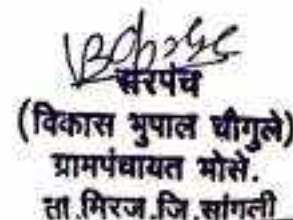 सरपंच
(विकास भुपाल चौगुले)
ग्रामपंचायत भोसे.
ता.मिरज.जि.सांगली